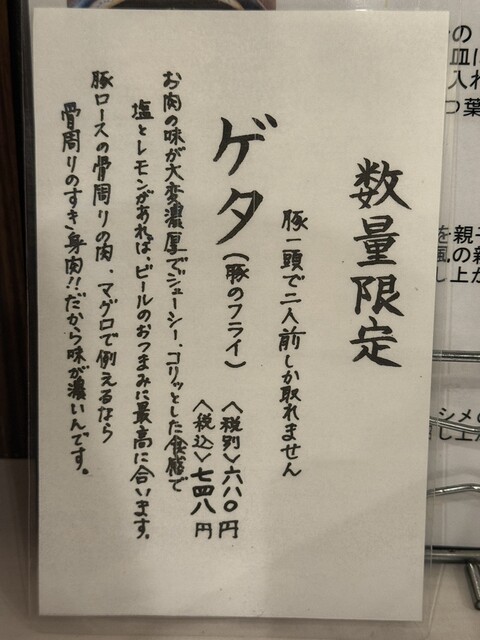 数量限定
豚一頭で二人前しか取れません
ゲタ(豚のフライ)
〈税別〉六八〇円
〈税込〉七四八円
お肉の味が大変濃厚でジューシー、コリッとした食感で
塩とレモンがあれば、ビールのおつまみに最高に合います。
豚ロースの骨周りの肉、マグロで例えるなら
骨周りのすき身肉!!だから味が濃いんです。